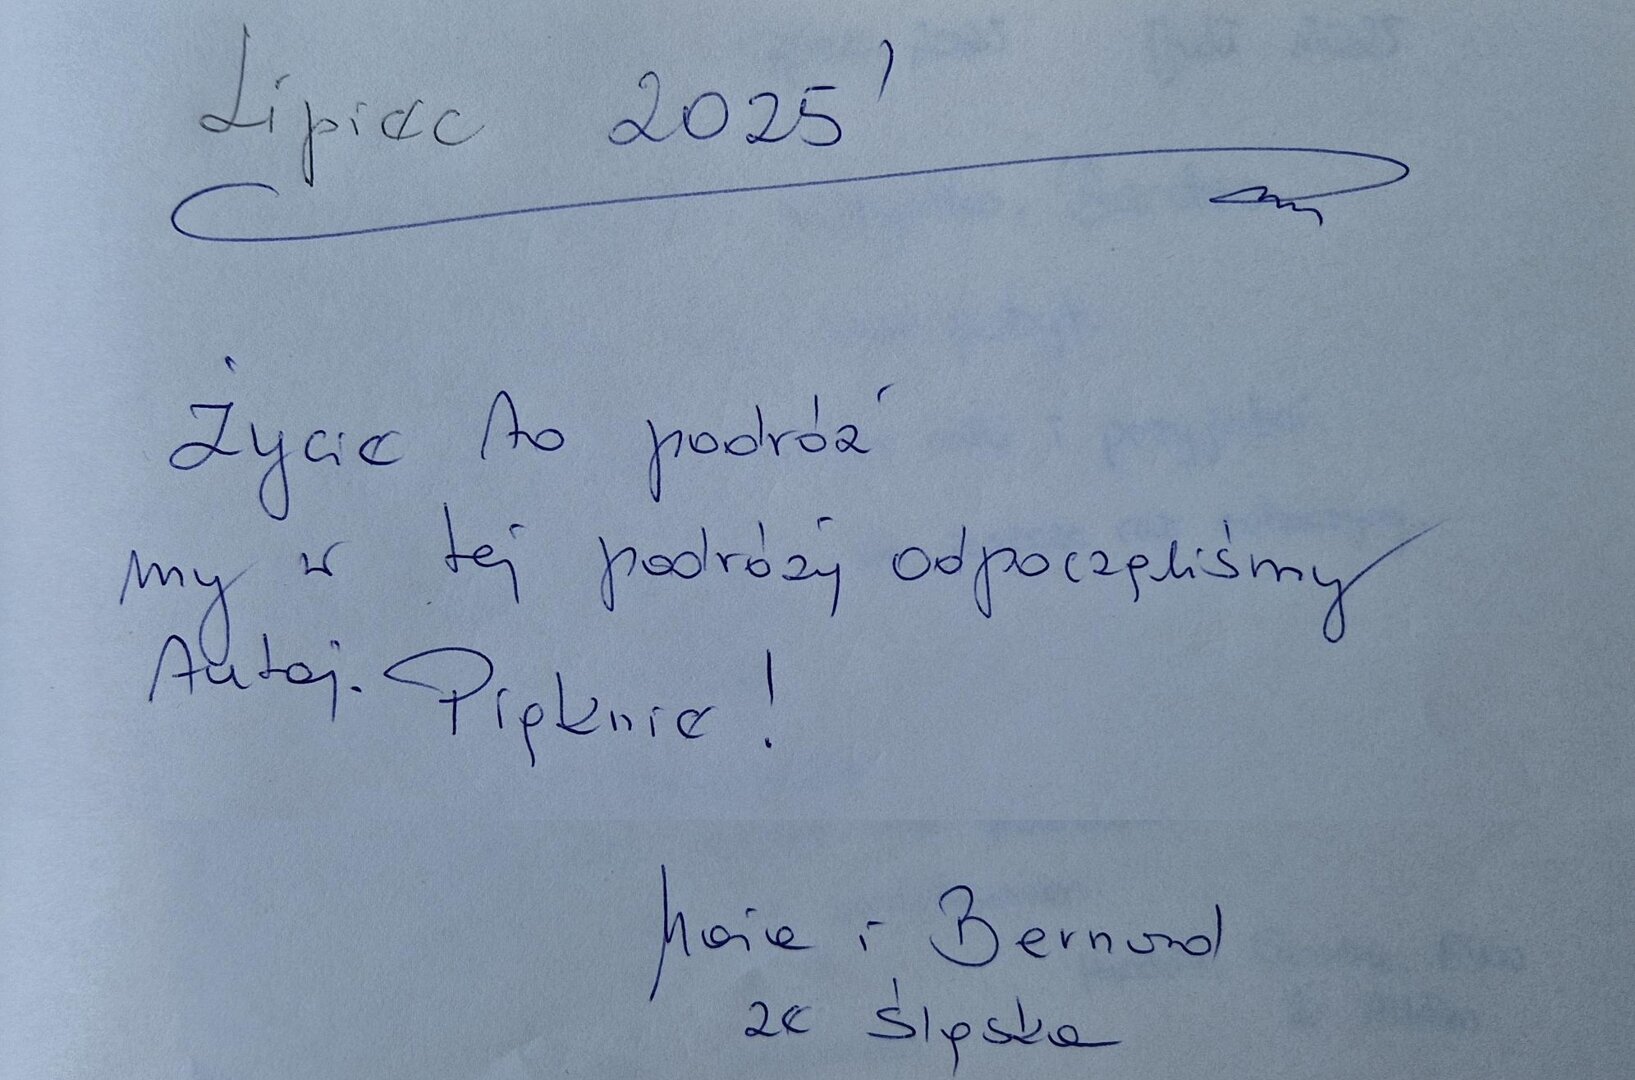 Lipiec 2025'
Życie to podróż
my w tej podróży odpoczęliśmy
tutaj. Pięknie!
Maja i Bernard
ze Śląska